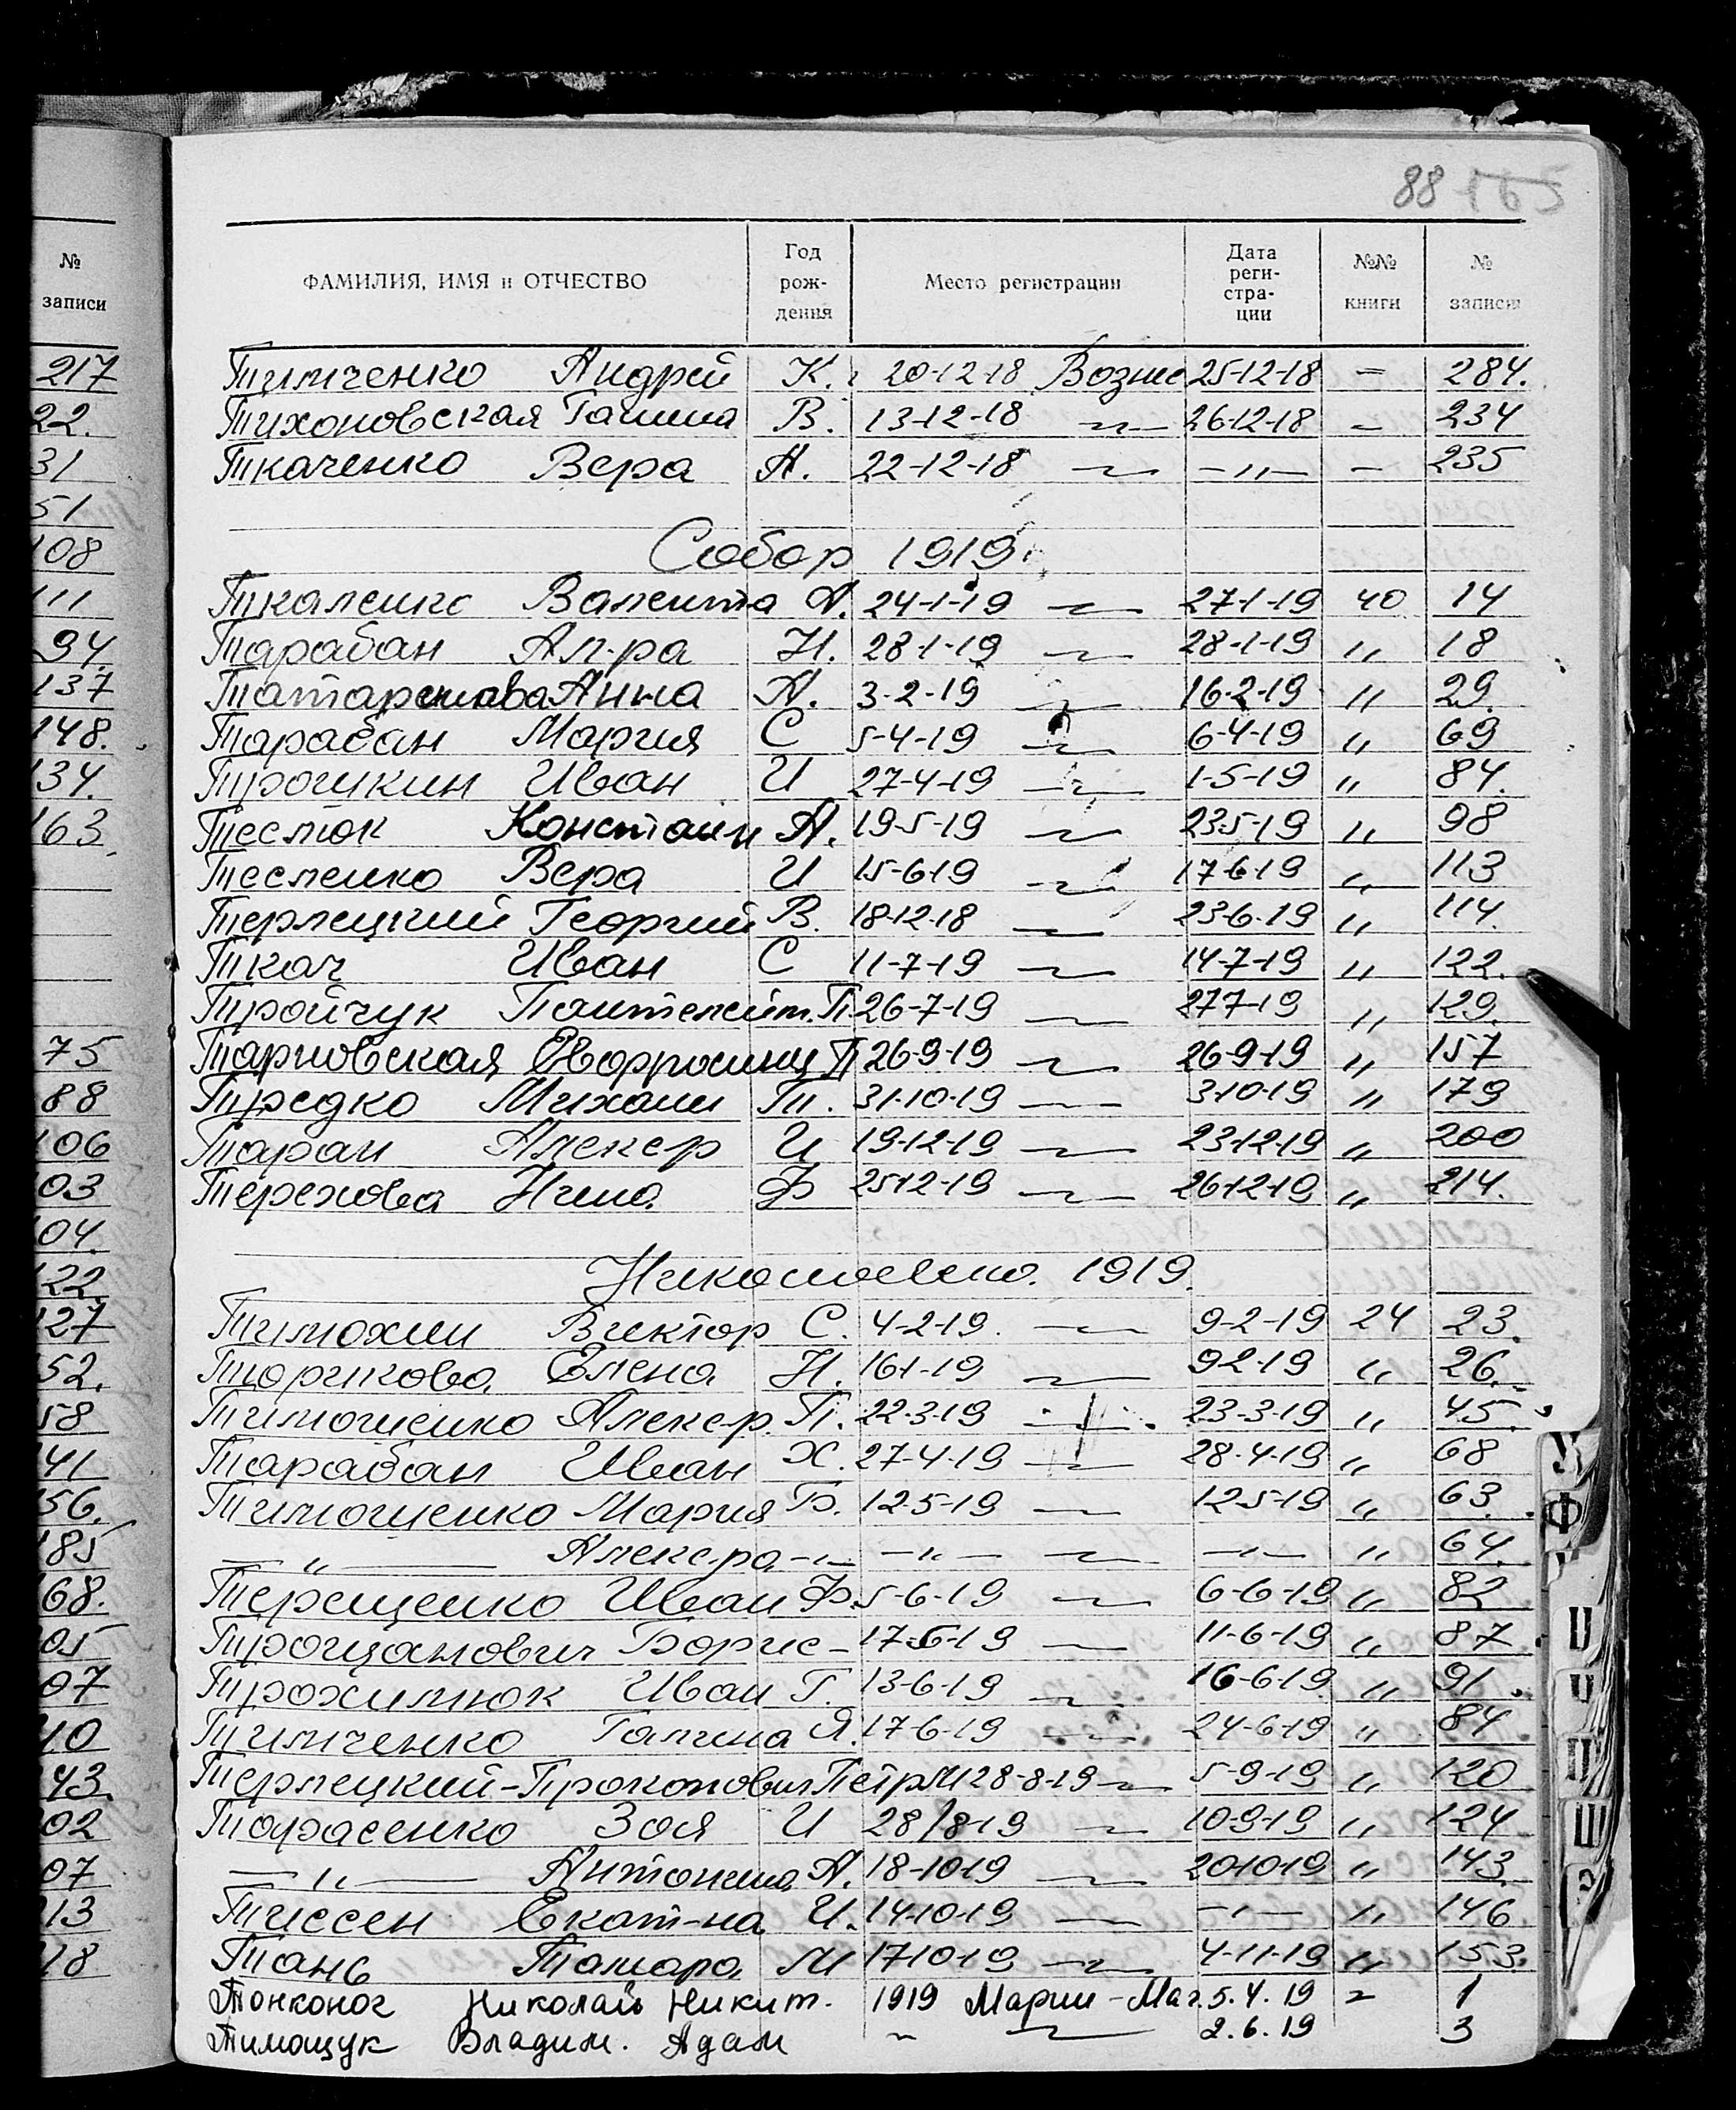 88 165
№ записи
ФАМИЛИЯ, ИМЯ и ОТЧЕСТВО Год рож- дения Место регистрации Дата реги- стра- ции №№ книги № записи
217 Тимченко Андрей К. 20-12-18 Возне 25-12-18 — 284.
22. Тихоновская Галина В. 13-12-18 —〃— 26-12-18 — 234
31 Ткаченко Вера А. 22-12-18 —〃— —〃— — 235
51
108 Собор 1919.
111 Ткаленко Валента А. 24-1-19 —〃— 27-1-19 40 14
94. Тарабан Ал-ра Н. 28-1-19 —〃— 28-1-19 〃 18
137 Татаринова Анна А. 3-2-19 —〃— 16-2-19 〃 29.
148. Тарабан Мария С 5-4-19 —〃— 6-4-19 〃 69
134. Трошкин Иван И 27-4-19 —〃— 1-5-19 〃 84.
163. Теслюк Констан А. 19-5-19 —〃— 23-5-19 〃 98
Тесленко Вера И 15-6-19 —〃— 17-6-19 〃 113
Терлецкий Георгий В. 18-12-18 —〃— 23-6-19 〃 114.
Ткач Иван С 11-7-19 —〃— 14-7-19 〃 122.
Тройчук Пантелейм. П. 26-7-19 —〃— 27-7-19 〃 129.
75 Тарновская Евфросиния П 26-9-19 —〃— 26-9-19 〃 157
88 Тредко Михаил Т. 31-10-19 —〃— 3-10-19 〃 179
106 Таран Алек-р И 19-12-19 —〃— 23-12-19 〃 200
03 Терехова Нина Ф 25-12-19 —〃— 26-12-19 〃 214.
04.
22. Николаевско. 1919.
127 Тимохин Виктор С. 4-2-19. —〃— 9-2-19 24 23.
52. Тюрикова Елена Н. 16-1-19 —〃— 9-2-19 〃 26.
58 Тимошенко Алек-р. П. 22-3-19 —〃— 23-3-19 〃 45.
41 Тарабан Иван Х. 27-4-19 —〃— 28-4-19 〃 68
56. Тимошенко Мария Б. 12-5-19 —〃— 12-5-19 〃 63.
185 —〃— Алек-ра —〃— —〃— —〃— —〃— 〃 64.
68. Терещенко Иван Ф. 5-6-19 —〃— 6-6-19 〃 82
05 Троцанович Борис — 17-5-19 —〃— 11-6-19 〃 87
07 Трохимюк Иван Г. 13-6-19 —〃— 16-6-19 〃 91.
40 Тимченко Галина Я. 17-6-19 —〃— 24-6-19 〃 84
43. Терлецкий-Прокопович Петр М 28-8-19 —〃— 5-9-19 〃 120
02 Тарасенко Зоя И 28/8-19 —〃— 10-9-19 〃 124
07 —〃— Антонина А. 18-10-19 —〃— 20-10-19 〃 143.
13 Тиссен Екат-на И. 14-10-19 —〃— —〃— 〃 146
18 Тань Тамара М 17-10-19 —〃— 4-11-19 〃 153.
Тонконог Николай Никит. 1919 Марии-Маг. 5.4.19 〃 1
Тимощук Владим. Адам 〃 —〃— 2.6.19 3
У
Ф
Ш